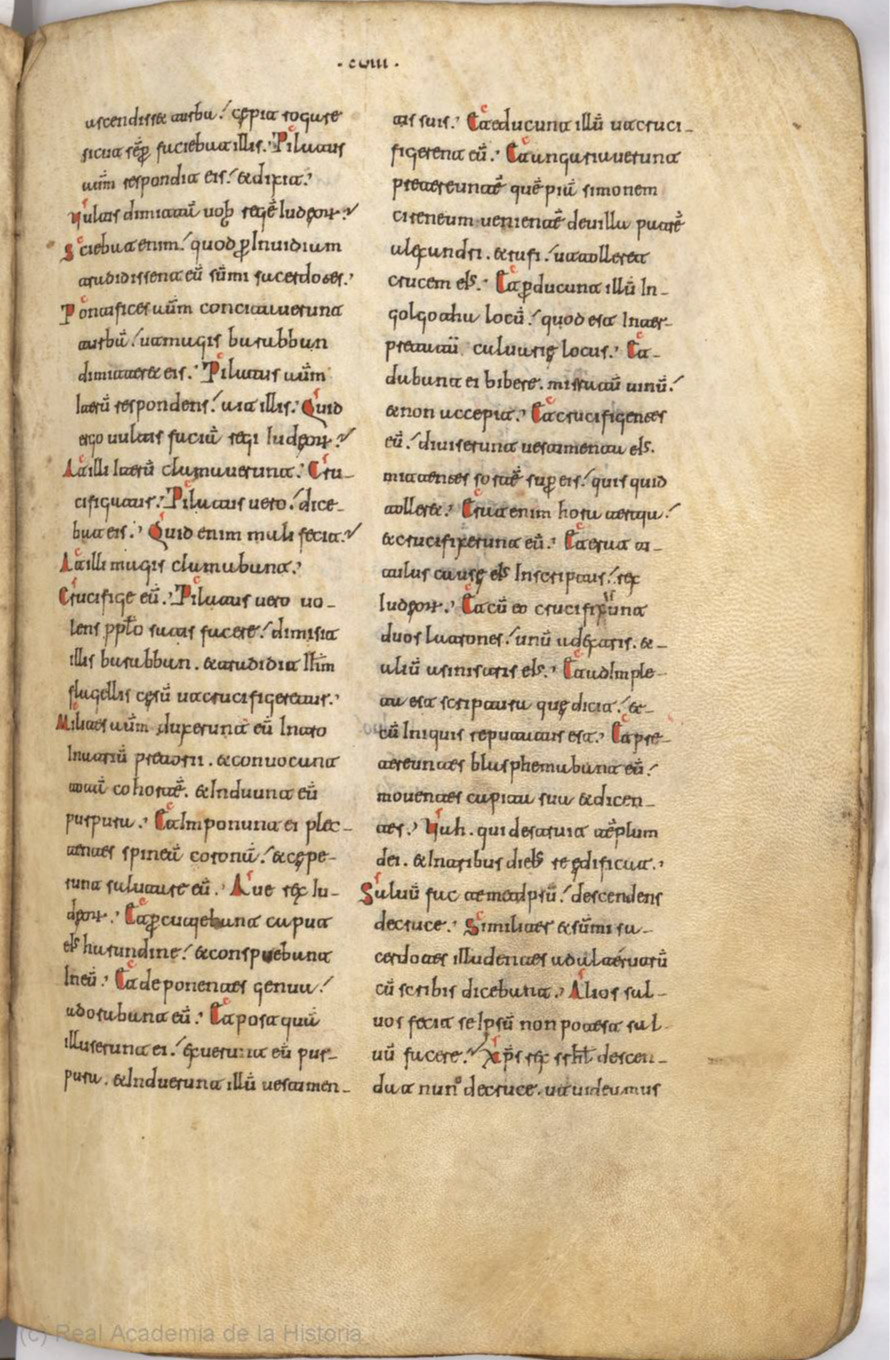 · cviii ·
ascendisset turba / cępit rogare
sicut sēp̄ faciebat illis. Pilatus
autm̄ respondit eis / & dixit.
Vultis dimittā uob regē Iudęor̄
Sciebat enim / quod p̱ Inuidiam
tradidissent eū sūmi sacerdotes.
Pontifices aūm concitauerunt
turbā / ut magis barabban
dimitteret eis. Pilatus aūm
Iterū respondens / ait illis. Quid
ergo uultis faciā regi Iudęor̄
At illi Iterū clamauerunt. Cru-
cifigatur. Pilatus uero / dice-
bat eis. Quid enim mali fecit
At illi magis clamabant.
Crucifige eū. Pilatus uero uo-
lens pplo satis facere / dimisit
illis barabban. & tradidit Ihm̄
flagellis cęsū ut crucifigeretur.
Milites aūm duxerunt eū Intro
In atriū pretorii. & conuocant
totā cohortē. & Induunt eū
purpura. Et Imponunt ei plec-
tentes spineā coronā / & cępe-
runt salutare eū. Aue rex Iu-
dęor̄. Et p̱cutiebant caput
eīs harundine / & conspuebant
Ineū. Et deponentes genua /
adorabant eū. Et postquā
illuserunt ei / exuerunt eū pur-
pura. & Induerunt illū uestimen-
tis suis. Et educunt illū ut cruci-
figerent eū. Et angariauerunt
pretereuntē quēpiā simonem
cireneum uenientē deuilla patrē
alexandri. & rufi / ut tolleret
crucem eīs. Et p̱ducunt illū In-
golgotha locū / quod est Inter-
pretatū caluarię locus. Et-
dabant ei bibere. mirratū uinū /
& non accepit. Et crucifigentes
eū / diuiserunt uestimenta eīs.
mittentes sortē sup̱ eis / quis quid
tolleret. Erat enim hora tertia /
& crucifixerunt eū. Et erat ti-
tulus causę eīs Inscriptus / rex
Iudęor̄. Et cū eo crucifixerunt
duos latrones / unū adextris. &-
aliū asinistris eīs. Et adImple-
ta est scriptura quę dicit / &-
cū Iniquis reputatus est. Et pre-
tereuntes blasphemabant eū /
mouentes capita sua & dicen-
tes. Vah. qui destruit tēplum
dei. & Intribus dieb̄ reędificat.
Saluū fac temetIpsū / descendens
decruce. Similiter & sūmi sa-
cerdotes illudentes adalterutrū
cū scribis dicebant. Alios sal-
uos fecit seIpsū non potest sal-
uū facere. Xp̄s rex isrhl̄ descen-
dat nunc decruce. ut uideamus